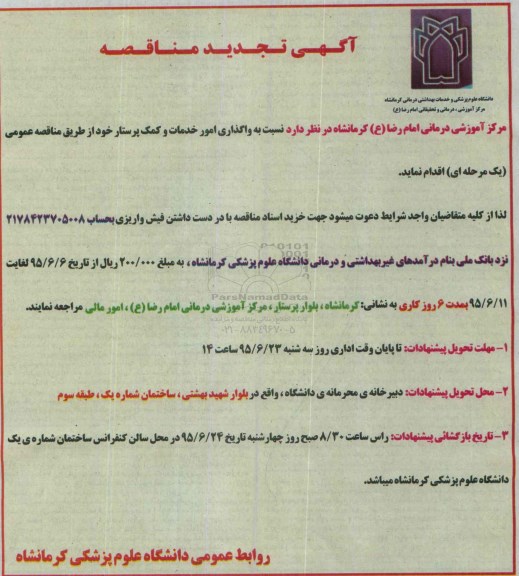 آگهی تجدید مناقصه
دانشگاه علوم پزشکی و خدمات بهداشتی درمانی کرمانشاه
مرکز آموزشی، درمانی و تحقیقاتی امام رضا (ع)
مرکز آموزشی درمانی امام رضا (ع) کرمانشاه در نظر دارد نسبت به واگذاری امور خدمات و کمک پرستار خود از طریق مناقصه عمومی
(یک مرحله ای) اقدام نماید.
لذا از کلیه متقاضیان واجد شرایط دعوت میشود جهت خرید اسناد مناقصه با در دست داشتن فیش واریزی بحساب ۲۱۷۸۴۲۳۷۰۵۰۰۸
نزد بانک ملی بنام درآمدهای غیربهداشتی و درمانی دانشگاه علوم پزشکی کرمانشاه، به مبلغ ۲۰۰/۰۰۰ ریال از تاریخ ۹۵/۶/۶ لغایت
۹۵/۶/۱۱ بمدت ۶ روز کاری به نشانی: کرمانشاه، بلوار پرستار، مرکز آموزشی درمانی امام رضا (ع)، امور مالی مراجعه نمایند.
ParsNamadData
۰۲۱-۸۸۳۴۹۶۷۰-۵
۱- مهلت تحویل پیشنهادات: تا پایان وقت اداری روز سه شنبه ۹۵/۶/۲۳ ساعت ۱۴
۲- محل تحویل پیشنهادات: دبیرخانه ی محرمانه ی دانشگاه، واقع در بلوار شهید بهشتی، ساختمان شماره یک، طبقه سوم
۳- تاریخ بازگشائی پیشنهادات: راس ساعت ۸/۳۰ صبح روز چهارشنبه تاریخ ۹۵/۶/۲۴ در محل سالن کنفرانس ساختمان شماره ی یک
دانشگاه علوم پزشکی کرمانشاه میباشد.
روابط عمومی دانشگاه علوم پزشکی کرمانشاه